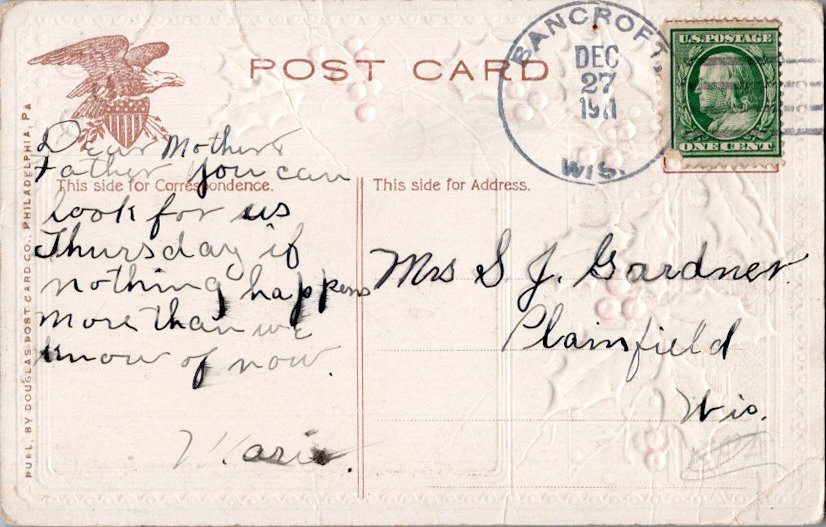 POST CARD
BANCROFT,
DEC
27
1911
WIS.
U.S.POSTAGE
ONE CENT
Dear Mother &
Father You can
This side for Correspondence.
look for us
Thursday if
nothing happens
more than we
know of now.
Marie.
This side for Address.
Mrs S J. Gardner
Plainfield
Wis.
PUBL. BY DOUGLAS POST CARD CO., PHILADELPHIA, PA